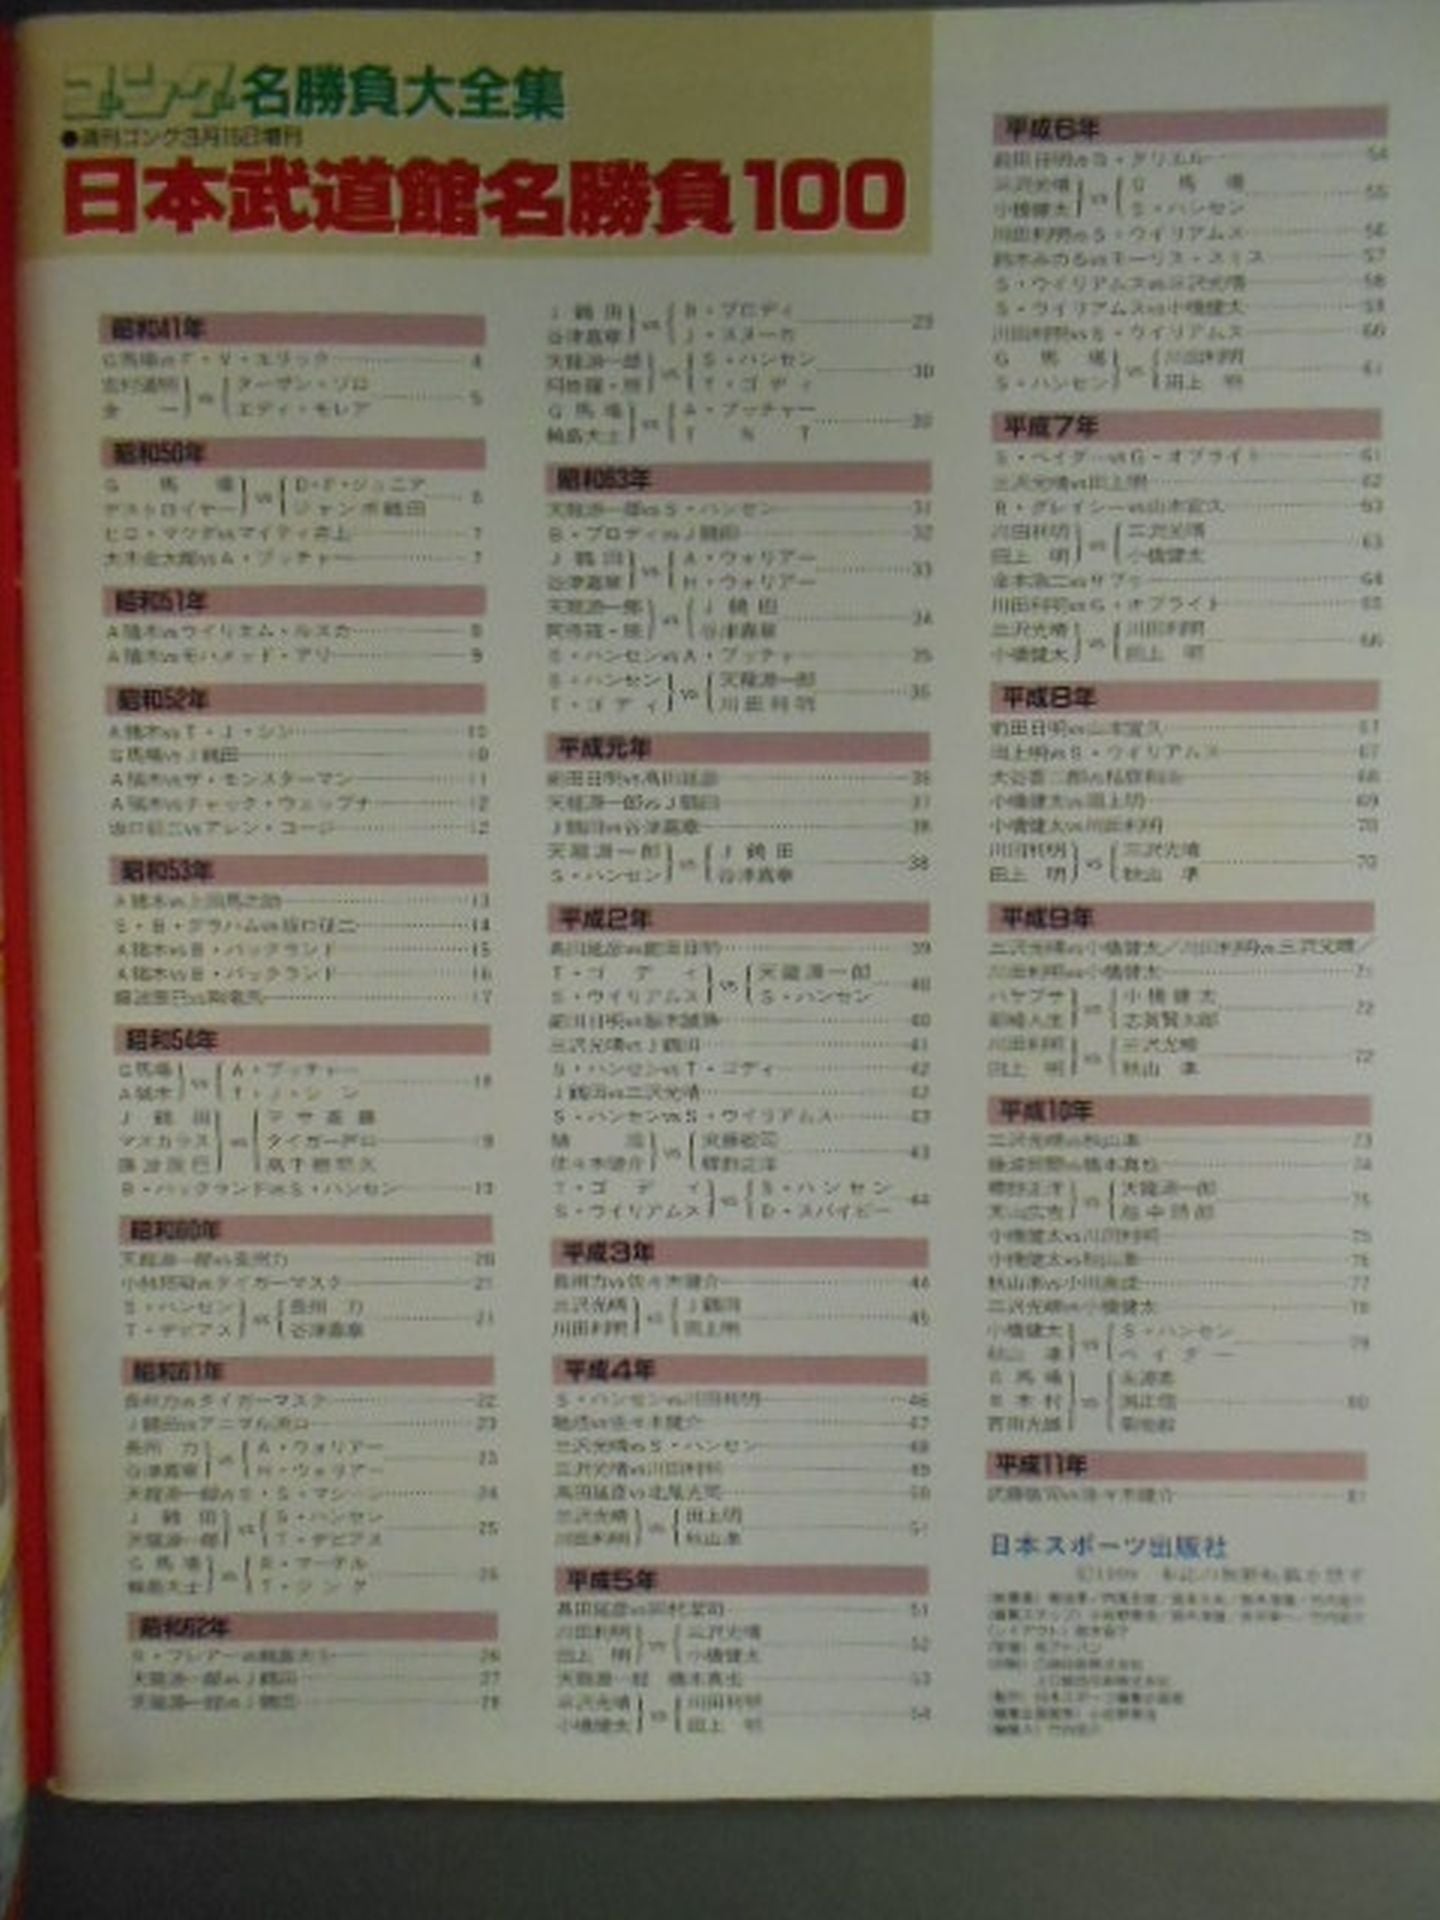 ゴング名勝負大全集
●週刊ゴング3月15日増刊
日本武道館名勝負100
昭和41年
G馬場vsF・V・エリック 4
ターザン・ゾロ
vs 5
エディ・モレア
昭和50年
G 馬 場 D・F・ジュニア
vs 6
デストロイヤー ジャンボ鶴田
ヒロ・マツダvsマイティ井上 7
大木金太郎vsA・ブッチャー 7
昭和51年
A猪木vsウイリエム・ルスカ 8
A猪木vsモハメッド・アリ 9
昭和52年
A猪木vsT・J・シン 10
G馬場vsJ鶴田 10
A猪木vsザ・モンスターマン 11
A猪木vsチャック・ウェップナー 12
坂口征二vsアレン・コージ 12
昭和53年
A猪木vs上田馬之助 13
S・B・グラハムvs坂口征二 14
A猪木vsB・バックランド 15
A猪木vsB・バックランド 16
藤波辰巳vs剛竜馬 17
昭和54年
G馬場 A・ブッチャー
vs 18
A猪木 T・J・シン
J 鶴 田 マサ斎藤
マスカラス vs タイガー戸口
藤波辰巳 高千穂明久
B・バックランドvsS・ハンセン 19
昭和60年
天龍源一郎vs長州力 20
小林邦昭vsタイガーマスク 21
S・ハンセン 長州 力
vs 21
T・デビアス 谷津嘉章
昭和61年
長州力vsタイガーマスク 22
J鶴田vsアニマル浜口 23
長州 力 A・ウォリアー
vs 23
谷津嘉章 H・ウォリアー
天龍源一郎vsS・S・マシーン 24
J 鶴 田 S・ハンセン
vs 25
天龍源一郎 T・デビアス
G 馬 場 R・マーテル
vs
輪島大士 T・ジンク
昭和62年
R・フレアーvs輪島大士 26
天龍源一郎vsJ鶴田 27
天龍源一郎vsJ鶴田 28
J 鶴 田 B・ブロディ
vs 29
谷津嘉章 J・スヌーカ
天龍源一郎 S・ハンセン
vs 30
阿修羅・原 T・ゴディ
G 馬 場 A・ブッチャー
vs 30
輪島大士 T N T
昭和63年
天龍源一郎vsS・ハンセン 31
B・ブロディvsJ鶴田 32
J 鶴 田 A・ウォリアー
vs 33
谷津嘉章 H・ウォリアー
天龍源一郎 J 鶴 田
vs 34
阿修羅・原 谷津嘉章
S・ハンセンvsA・ブッチャー 35
S・ハンセン 天龍源一郎
vs 35
T・ゴディ 川田利明
平成元年
前田日明vs高田延彦 36
天龍源一郎vsJ鶴田 37
J鶴田vs谷津嘉章 38
天龍源一郎 J 鶴 田
vs 38
S・ハンセン 谷津嘉章
平成2年
高田延彦vs前田日明 39
T・ゴディ 天龍源一郎
vs 40
S・ウイリアムス S・ハンセン
前田日明vs船木誠勝 40
三沢光晴vsJ鶴田 41
S・ハンセンvsT・ゴディ 42
J鶴田vs三沢光晴 42
S・ハンセンvsS・ウイリアムス 43
馳 浩 武藤敬司
vs 43
佐々木健介 蝶野正洋
T・ゴディ S・ハンセン
vs 44
S・ウイリアムス D・スパイビー
平成3年
長州力vs佐々木健介 44
三沢光晴 J鶴田
vs 45
川田利明 田上明
平成4年
S・ハンセンvs川田利明 46
馳浩vs佐々木健介 47
三沢光晴vsS・ハンセン 48
三沢光晴vs川田利明 49
高田延彦vs北尾光司 50
三沢光晴 田上明
vs 51
川田利明 秋山準
平成5年
高田延彦vs田村潔司 51
川田利明 三沢光晴
vs 52
田上 明 小橋健太
天龍源一郎 橋本真也 53
三沢光晴 川田利明
vs 54
小橋健太 田上 明
平成6年
54
三沢光晴 G 馬 場
vs 55
小橋健太 S・ハンセン
川田利明vsS・ウイリアムス 56
鈴木みのるvsモーリス・スミス 57
S・ウイリアムスvs三沢光晴 58
S・ウイリアムスvs小橋健太 59
川田利明vsS・ウイリアムス 60
G 馬 場 川田利明
vs 61
S・ハンセン 田上 明
平成7年
S・ベイダーvsG・オブライト 61
三沢光晴vs田上明 62
R・グレイシーvs山本宜久 63
川田利明 三沢光晴
vs 63
田上 明 小橋健太
金本浩二vsサブゥ 64
川田利明vsG・オブライト 65
三沢光晴 川田利明
vs 66
小橋健太 田上 明
平成8年
前田日明vs山本宜久 67
田上明vsS・ウイリアムス 67
68
小橋健太vs田上明 69
小橋健太vs川田利明 70
川田利明 三沢光晴
vs 70
田上 明 秋山 準
平成9年
三沢光晴vs小橋健太／川田利明vs三沢光晴／
川田利明vs小橋健太 71
ハヤブサ 小橋健太
vs 72
新崎人生 志賀賢太郎
川田利明 三沢光晴
vs 72
田上 明 秋山 準
平成10年
三沢光晴vs秋山準 73
藤波辰爾vs橋本真也 74
蝶野正洋 天龍源一郎
vs 75
天山広吉 越中詩郎
小橋健太vs川田利明 75
小橋健太vs秋山準 76
秋山準vs小川良成 77
三沢光晴vs小橋健太 78
小橋健太 S・ハンセン
vs 79
秋山 準 ベイダー
G 馬 場 永源遙
R 木 村 vs 渕正信 80
百田光雄 菊地毅
平成11年
武藤敬司vs佐々木健介 81
日本スポーツ出版社
©1999 本誌の無断転載を禁ず